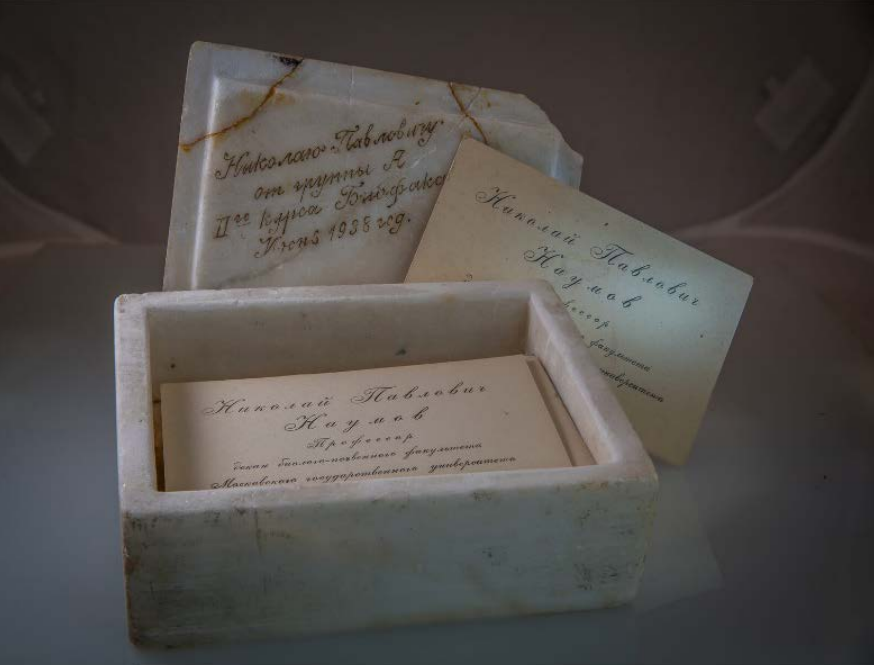 Николаю Павловичу
от группы А
IIго курса Биофака
Июнь 1938 год.
Николай Павлович
Наумов
факультета
университета
Николай Павлович
Наумов
Профессор
декан биолого-почвенного факультета
Московского государственного университета